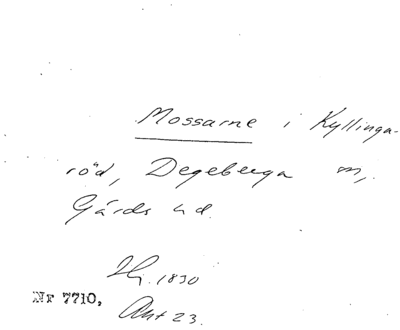 Mossarne i Kyllinga-
röd, Degeberga sn,
Gärds hd.
Hj. 1830
Nr 7710,
Akt 23.